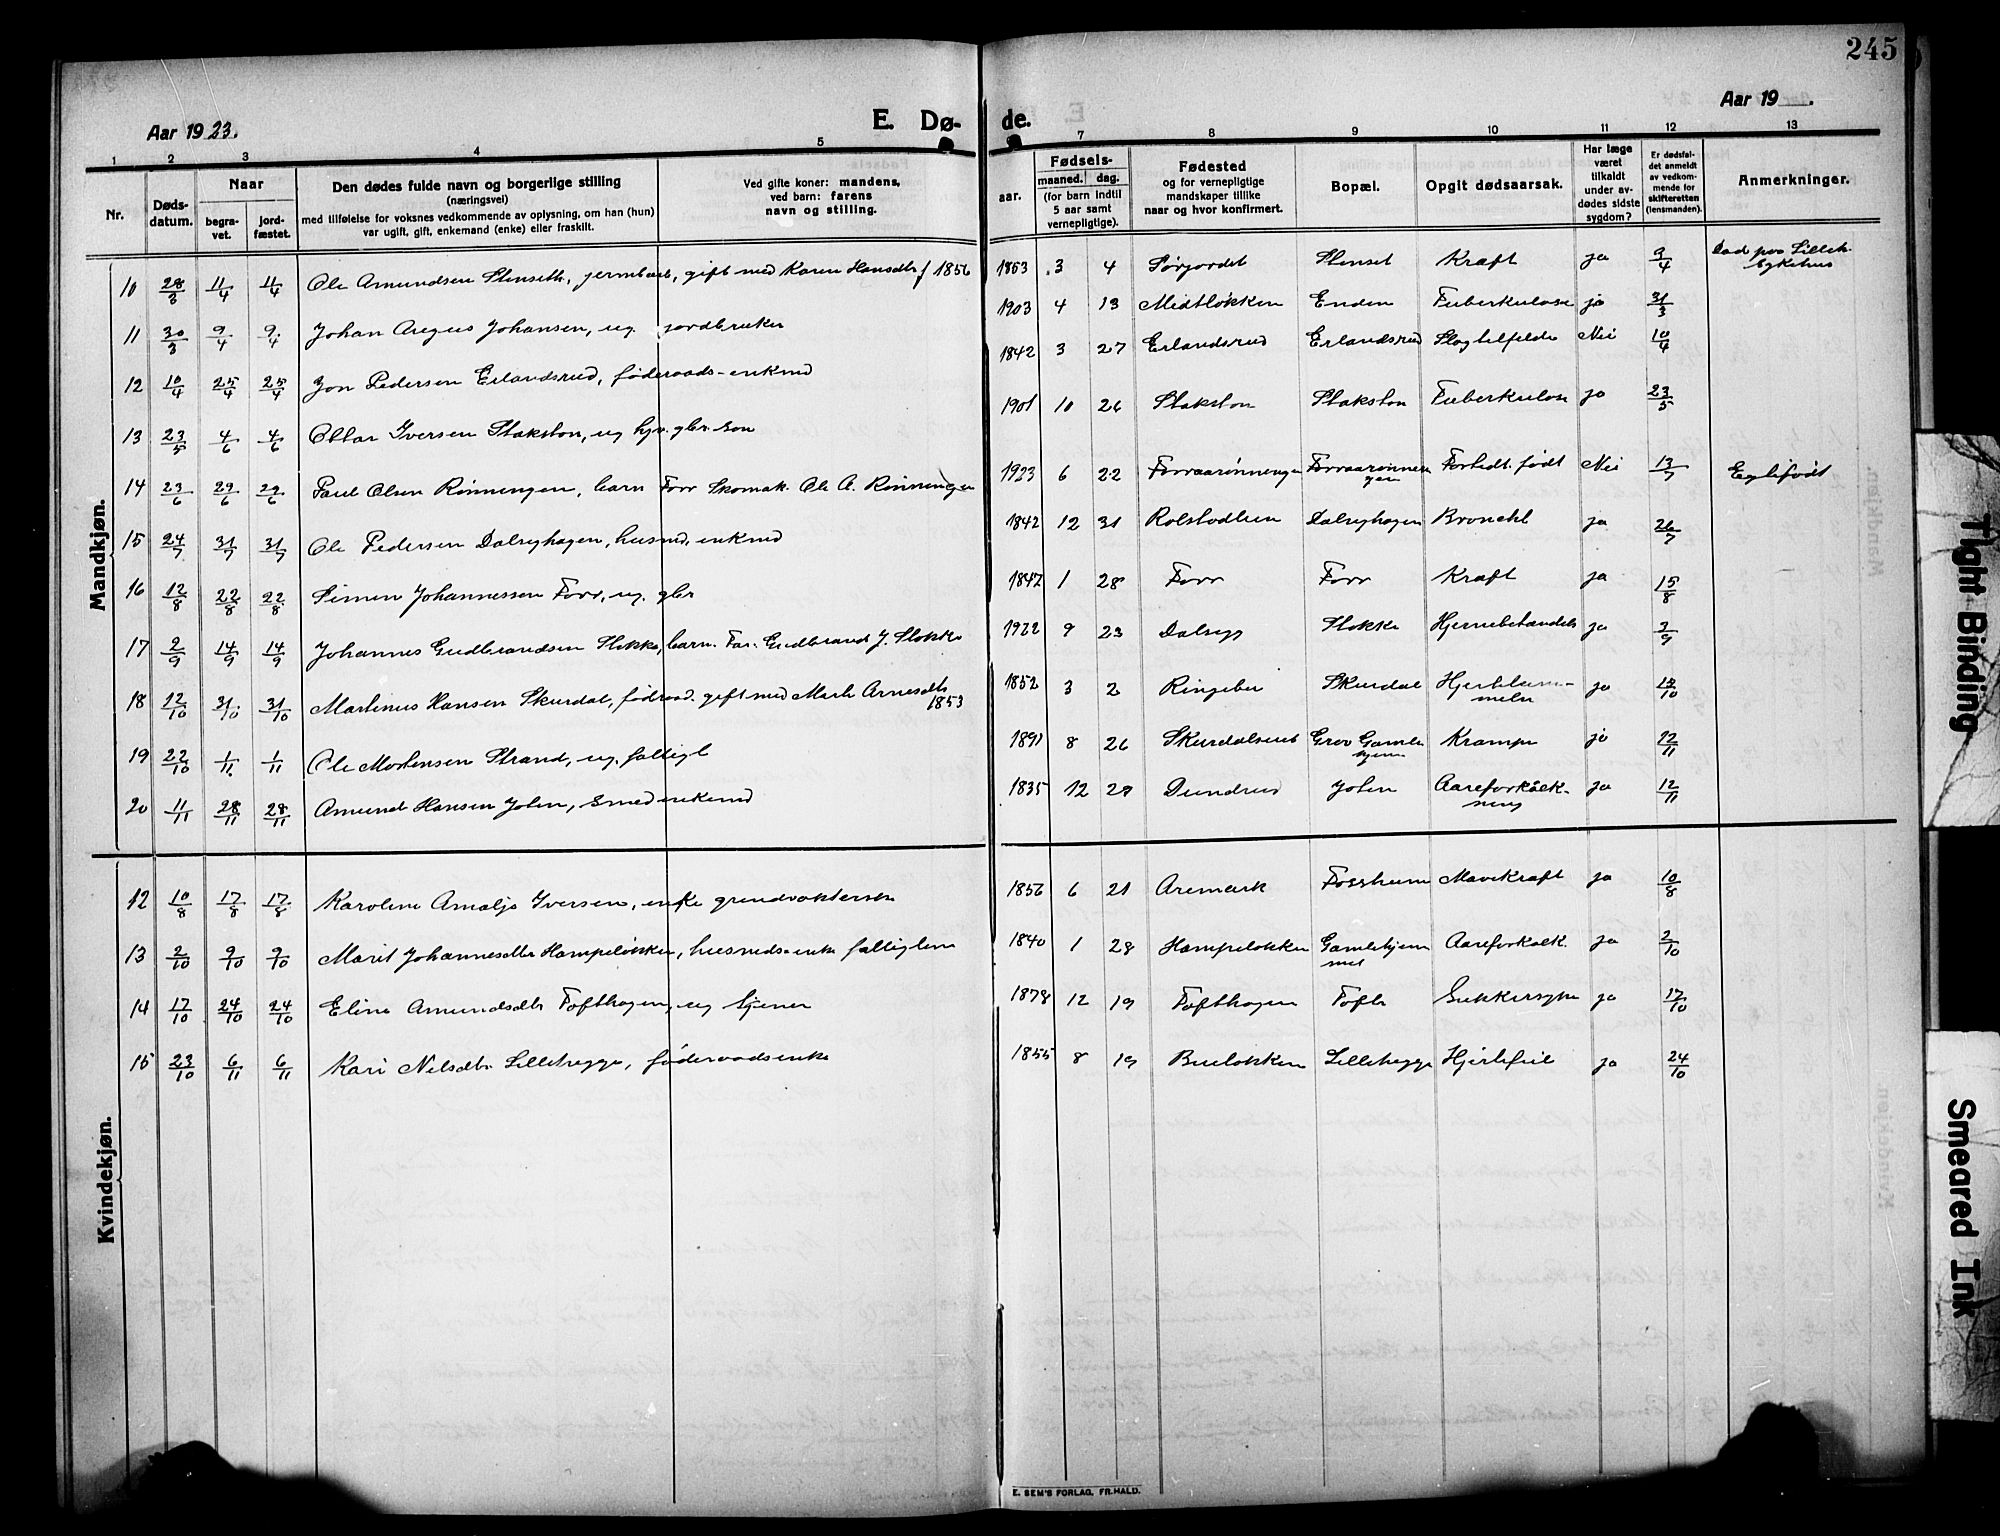 245
Aar 1923.
E. Dø-
de.
Aar 19 .
1 2 3 4 5 7 8 9 10 11 12 13
Nr.
Døds-
datum.
Naar
begra-
vet.
jord-
fæstet.
Den dødes fulde navn og borgerlige stilling
(næringsvei)
med tilføielse for voksnes vedkommende av oplysning, om han (hun)
var ugift, gift, enkemand (enke) eller fraskilt.
Ved gifte koner: mandens,
ved barn: farens
navn og stilling.
aar.
Fødsels-
maaned. dag.
(for barn indtil
5 aar samt
vernepligtige).
Fødested
og for vernepligtige
mandskaper tillike
naar og hvor konfirmert.
Bopæl.
Opgit dødsaarsak.
Har læge
været
tilkaldt
under av-
dødes sidste
sygdom?
Er dødsfal-
det anmeldt
av vedkom-
mende for
skifteretten
(lensmanden).
Anmerkninger.
Mandkjøn.
10 28/3 11/4 11/4 Ole Amundsen Stenseth, gift med Karen Hansdtr f 1856 1863 3 4 Sørjordet Stenset Kræft ja 9/4 Død paa Lilleh. Sykehus
11 30/3 9/4 9/4 Johan Johansen, ug. jordbruker 1903 4 13 Midtløkken Enden Tuberkulose ja 31/3
12 10/4 25/4 25/4 Jon Pedersen Erlandsrud, føderaads-enkmd 1842 3 27 Erlandsrud Erlandsrud Slagtilfelde Nei 10/4
13 23/5 4/6 4/6 Ottar Iversen Stakston, ug gbr. søn 1901 10 26 Stakston Stakston Tuberkulose ja 23/5
14 23/6 29/6 29/6 Paul Olsen Rønningen, barn Forr Skomak. Ole A. Rønningen 1923 6 22 Forraarønningen Forraarønnin gen Forhdt. født Nei 13/7
15 24/7 31/7 31/7 Ole Pedersen Dalseghagen, husmd. enkmd 1842 12 31 Rolstadlien Dalseghagen Broncht ja 26/7
16 12/8 22/8 22/8 Simen Johannessen Forr, ug. gbr 1847 1 28 Forr Forr Kræft ja 15/8
17 2/9 14/9 14/9 Johannes Gudbrandsen Stokke, barn. Far. Gudbrand J. Stokke 1922 9 23 Dalseg Stokke ja 3/9
18 12/10 31/10 31/10 Martinus Hansen Skurdal, føderaad. gift med Marte Arnesdtr 1853 1852 3 2 Ringebu Skurdal ja 12/10
19 22/10 1/11 1/11 Ole Mortensen Strand, ug. fattigl 1891 8 26 Gamle hjem Krampe ja 12/11
20 11/11 28/11 28/11 Amund Hansen Jolen, smed enkemd 1835 12 29 Jolen Aareforkalk- ning ja 12/11
Kvindekjøn.
12 10/8 17/8 17/8 Karoline Amalja Iversen, enke 1856 6 21 Aremark Fossheim Mavekræft ja 10/8
13 2/10 9/10 9/10 Marit Johannesdtr Hampeløkken, husmds-enke fattiglem 1840 1 28 Hampeløkken Gamlehjem met Aareforkalk. ja 2/10
14 17/10 24/10 24/10 Eline Amundsdtr Tofthagen, ug tjener 1878 12 19 Tofthagen Tofte Sukkersyke ja 17/10
15 23/10 6/11 6/11 Kari Nilsdtr Lillehegge, føderaadsenke 1855 8 19 Bueløkken Lillehegge Hjertefeil ja 24/10
E. SEM'S FORLAG, FR.HALD.
Tight Binding
Smeared Ink